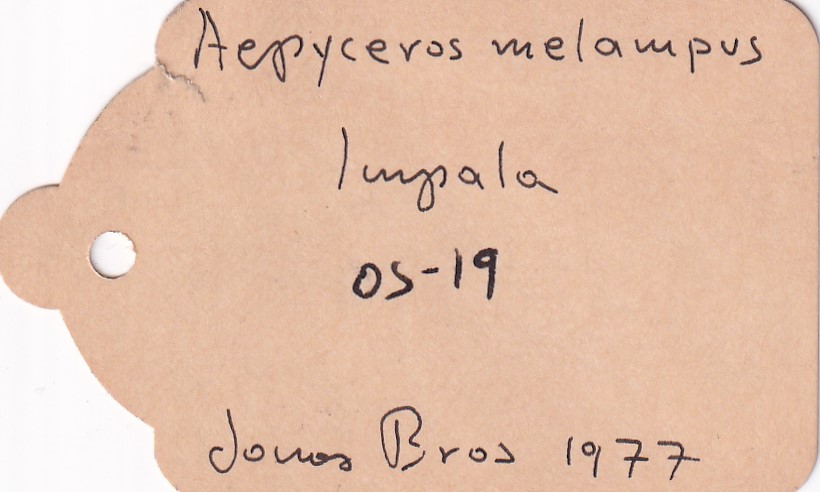 Aepyceros melampus
Impala
OS-19
Jonas Bros 1977